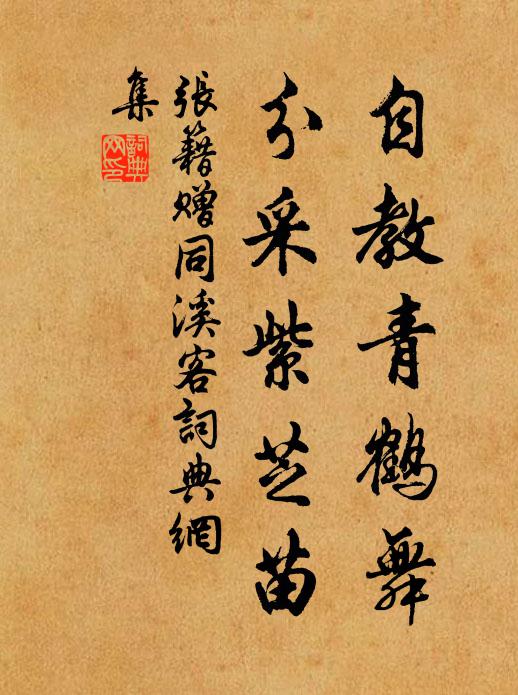 自教青鶴舞
分采紫芝苗
張籍赠同溪客詞典網
集
詞典
网印